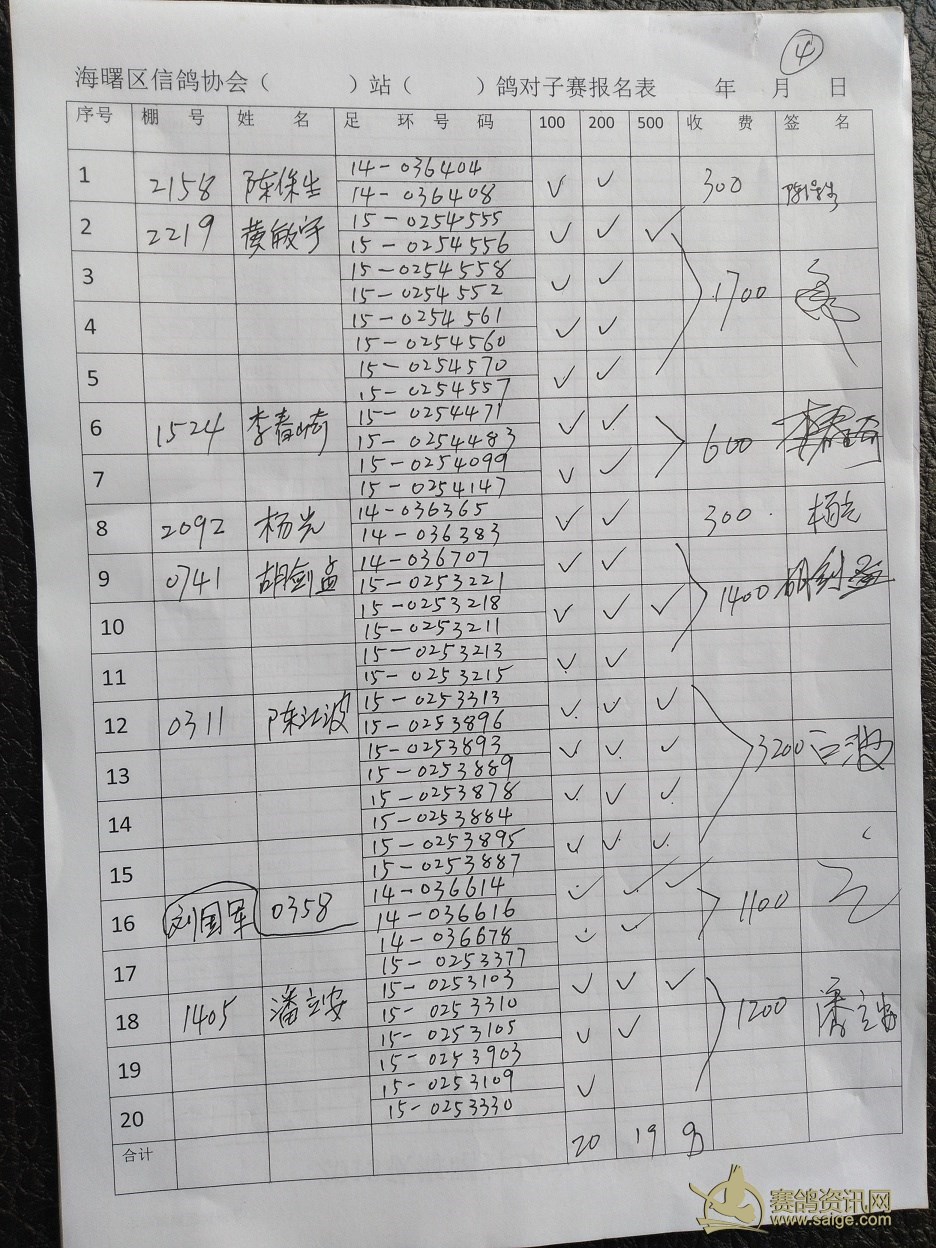 4
海曙区信鸽协会（ ）站（ ）鸽对子赛报名表 年 月 日
序号 棚 号 姓 名 足 环 号 码 100 200 500 收 费 签 名
1 2158 陈保生 14-036404 ✓ ✓ 300 陈保生
14-036408
2 2219 黄敏宇 15-0254555 ✓ ✓ ✓
15-0254556
3 15-0254558 ✓ ✓ 1700
15-0254552
4 15-0254561 ✓ ✓
15-0254560
5 15-0254570 ✓ ✓
15-0254557
6 1524 李春崎 15-0254471 ✓ ✓ 600 李春崎
15-0254483
7 15-0254099 ✓ ✓
15-0254147
8 2092 杨光 14-036365 ✓ ✓ 300 杨光
14-036383
9 0741 胡剑孟 14-036707 ✓ ✓ 1400 胡剑孟
15-0253221
10 15-0253218 ✓ ✓ ✓
15-0253211
11 15-0253213 ✓ ✓
15-0253215
12 0311 陈江波 15-0253313 ✓ ✓ ✓ 3200 江波
15-0253896
13 15-0253893 ✓ ✓ ✓
15-0253889
14 15-0253878 ✓ ✓ ✓
15-0253884
15 15-0253895 ✓ ✓ ✓
15-0253887
16 刘国军 0358 14-036614 ✓ ✓ ✓ 1100
14-036616
17 14-036678 ✓ ✓
15-0253377
18 1405 潘立安 15-0253103 ✓ ✓ ✓ 1200 潘立安
15-0253310
19 15-0253105 ✓ ✓
15-0253903
20 15-0253109 ✓
15-0253330
合计 20 19 9
赛鸽资讯网
www.saige.com